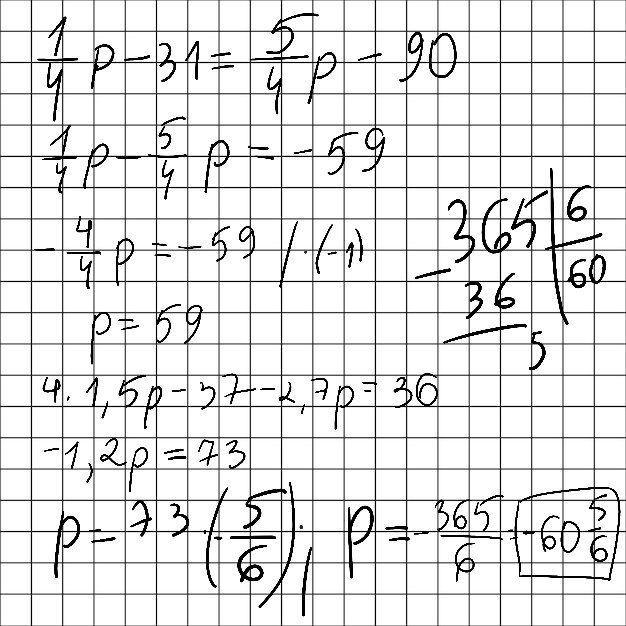 1/4 p - 31 = 5/4 p - 90
1/4 p - 5/4 p = -59
- 4/4 p = -59 / · (-1)
p = 59
365 | 6
- 36 | 60
5
4. 1,5p - 37 - 2,7p = 36
-1,2p = 73
p = 73 · (- 5/6) ; p = - 365/6 = -60 5/6